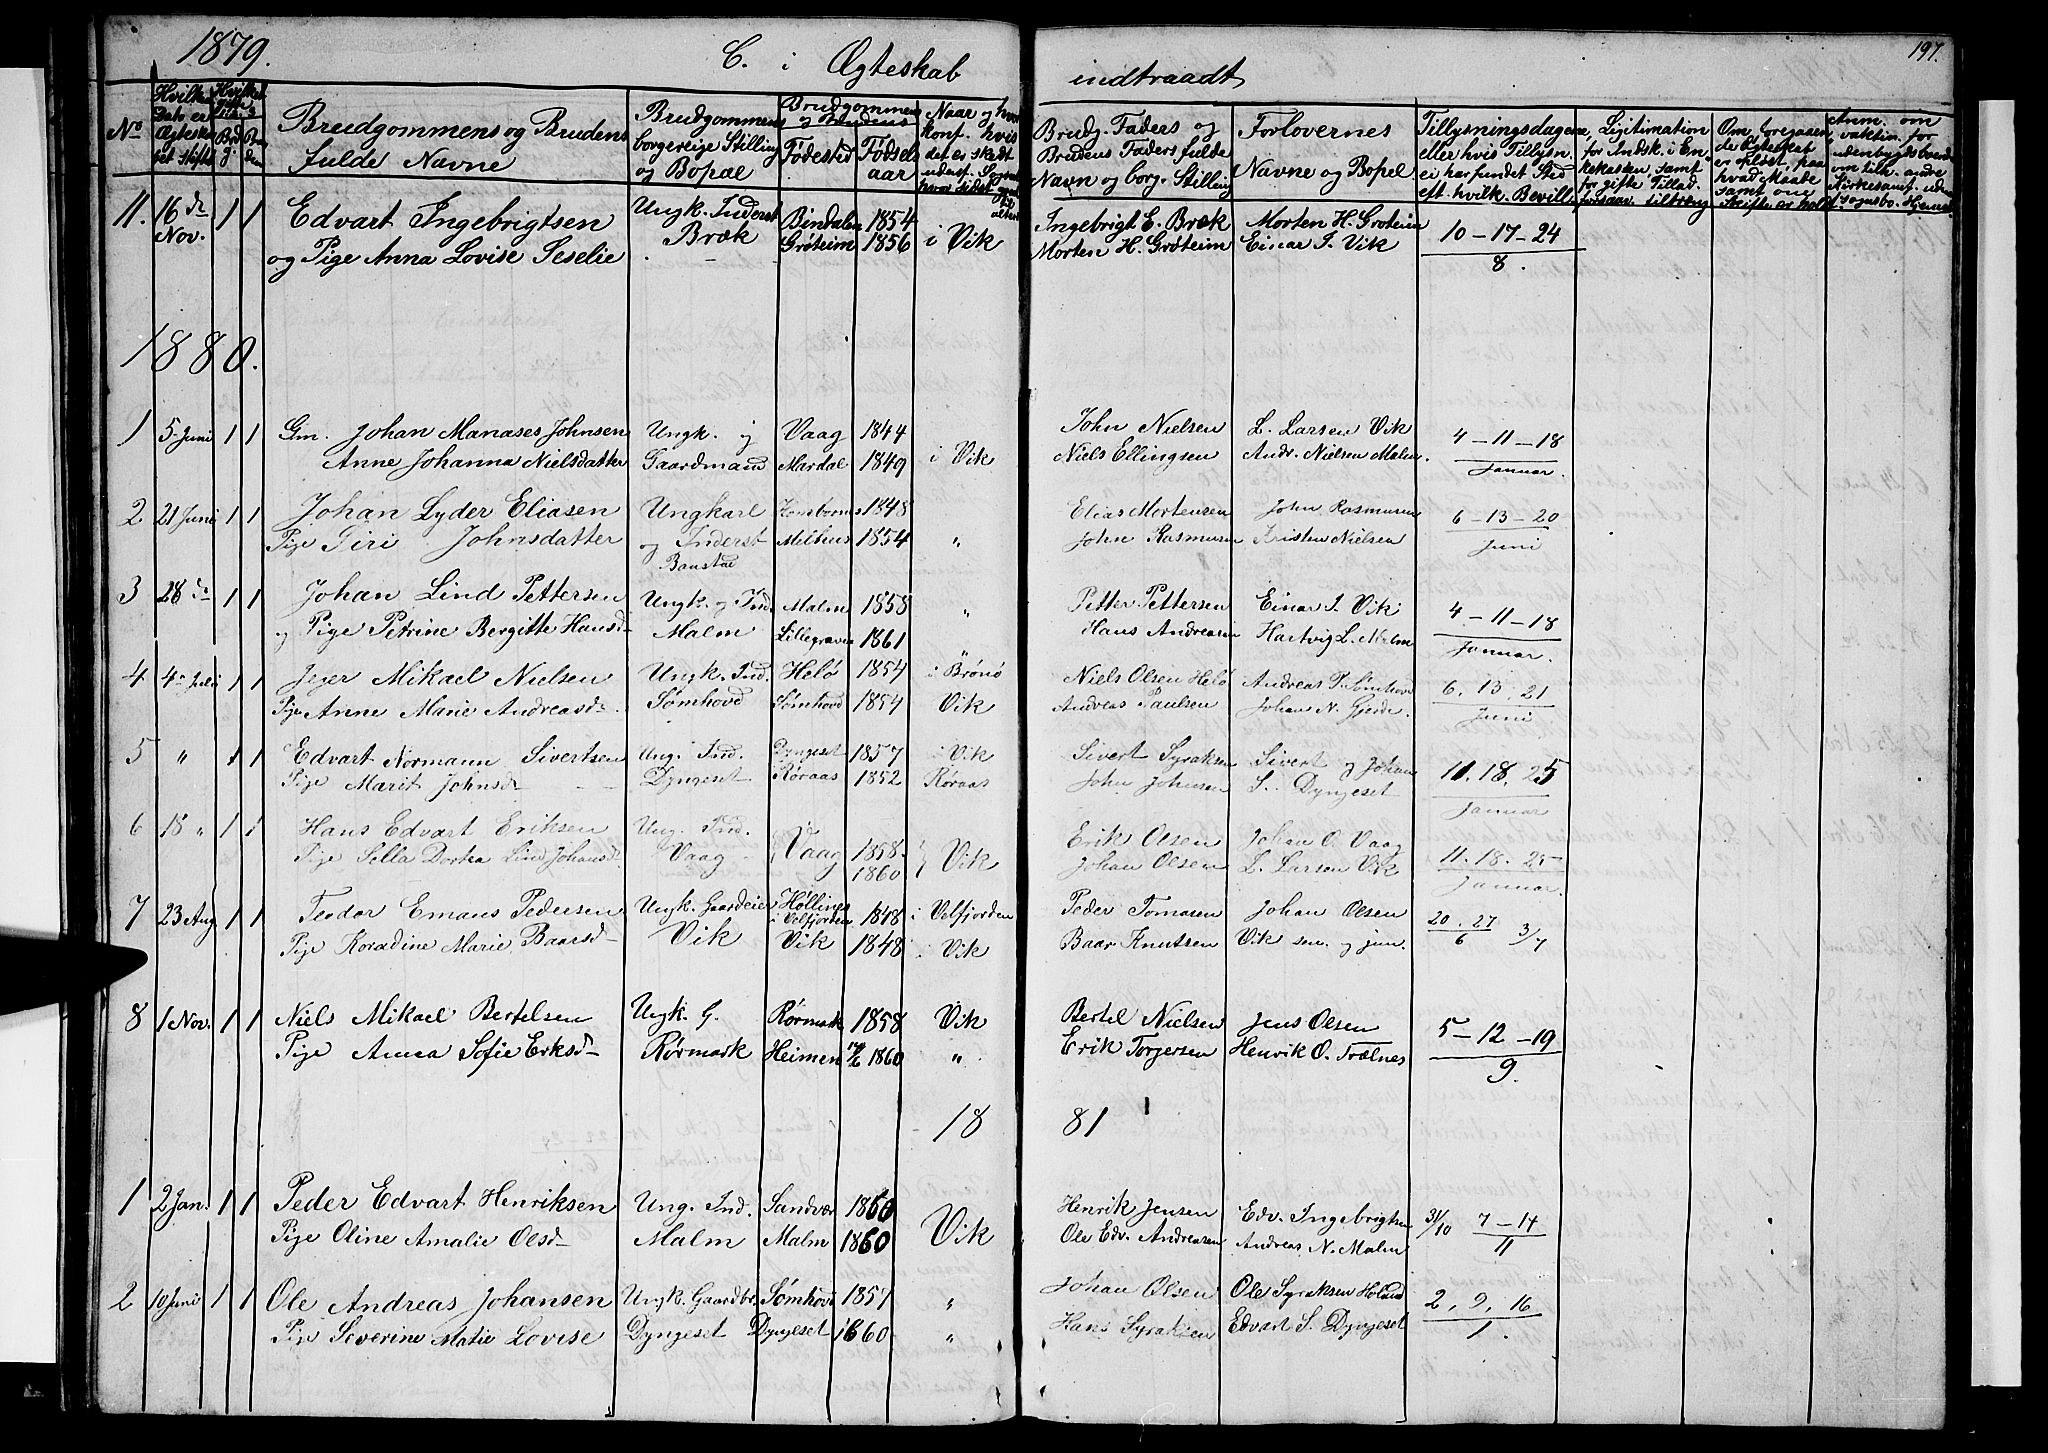 1879. C. i Ægteskab indtraadt 197.
No
Brudgommens og Brudens fulde Navne
Brudgommens borgerlige Stilling og Bopæl
Brudgommens og Brudens
Fødested Fødsels aar
Brudg. Faders og Brudens Faders fulde Navn og borg. Stilling
Forlovernes Navne og Bopæl
Tillysningsdagene, eller hvis Tillysn. ei har fundet Sted eft. hvilk. Bevill.
11. 16 de Nov. 1 1 Edvart Ingebrigtsen Ungk. Inderst Bindalen 1854 i Vik Ingebrigt E. Bræk Morten H. Groteim 10-17-24
og Pige Anna Lovise Seselie Bræk Groteim 1856 Morten H. Groteim Einar J. Vik 8.
1880.
1 5 Juni 1 1 Gm. Johan Manases Johnsen Ungk. og Vaag 1844 John Nielsen L. Larsen Vik 4-11-18
Anne Johanna Nielsdatter Gaardmand Mardal 1849 i Vik Niels Ellingsen Andr. Nielsen Malm. Januar.
2 21 Juni 1 1 Johan Lyder Eliasen Ungkarl 1848 Elias Mortensen John Rasmusen 6-13-20
Pige Siri Johnsdatter og Inderst Melhus 1854 " John Rasmusen Kristen Nielsen Juni
Baustad
3 28 de 1 1 Johan Lind Pettersen Ungk. og Ind. Malm 1858 " Petter Pettersen Einar J. Vik 4-11-18
og Pige Petrine Bergitte Hansd- Malm Lillegraven 1861 Hans Andreasen Hartvig L. Malm Januar.
4 4 Juli 1 1 Jeger Mikael Nielsen Ungk. Ind. Helø 1854 i Brønø Niels Olsen Helø Andreas P. Sømhovd 6. 13. 21
Pige Anne Marie Andreasd- Sømhovd Sømhovd 1854 Vik Andreas Paulsen Johan N. Gjerde. Juni
5 " 1 1 Edvart Normann Sivertsen Ung. Ind. Dyngeset 1857 i Vik Sivert Syraksen Sivert og Johan 11. 18. 25
Pige Marit Johnsd- Dyngeset Røraas 1852 Røraas John Johnsen S. Dyngeset Januar
6 18 " 1 1 Hans Edvart Eriksen Ung. Ind. Vaag 1858. Vik Erik Olsen Johan O. Vaag 11. 18. 25
Pige Sella Dortea Lind Johansd- Vaag 1860 Johan Olsen L. Larsen Vik Januar.
7 23 Aug. 1 1 Teodor Emaus Pedersen Ungk. Gaardeier Høllines i Velfjorden 1848 i Velfjorden Peder Tomasen Johan Olsen 20. 27 3/7
Pige Koradine Marie Baarsd- Vik Vik 1848 i Vik Baar Knutsen Vik sen. og jun. 6
8 1 Nov. 1 1 Niels Mikael Bertelsen Ungk. G. Rørmark 1858 Vik Bertel Nielsen Jens Olsen 5-12-19
Pige Anna Sofie Eriksd- Rørmark Heimen 1860 " Erik Torgersen Henrik O. Trælnes 9.
18 81
1 2 Jan. 1 1 Peder Edvart Henriksen Ung. Ind. Sandvær 1860 Vik Henrik Jensen Edv. Ingebrigtsen 31/10 7-14
Pige Oline Amalie Olsd- Malm Malm 1860 Ole Edv. Andreasen Andreas N. Malm 11
2 10 Juni 1 1 Ole Andreas Johansen Ungk. Gaardbr. Sømhovd 1857 " Johan Olsen Ole Syraksen Holand 2, 9, 16
Pige Severine Matie Lovise Dyngeset Dyngeset 1860 " Hans Syraksen Edvart S. Dyngeset 1.